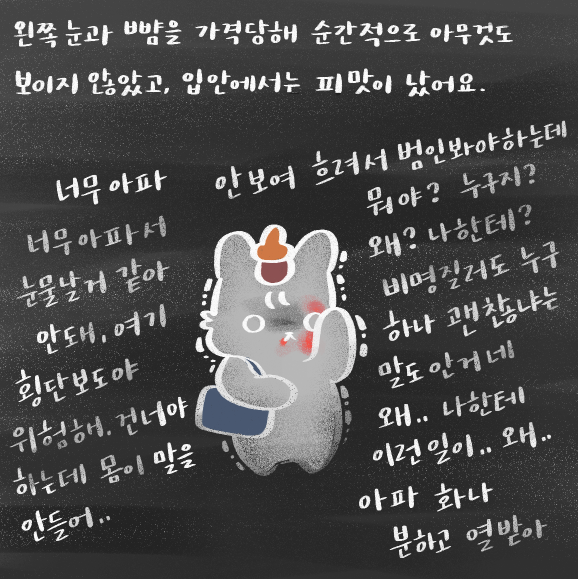 왼쪽 눈과 뺨을 가격당해 순간적으로 아무것도
보이지 않았고, 입안에서는 피맛이 났어요.
너무 아파
너무 아파서
눈물날거 같아
안돼, 여기
횡단보도야
위험해. 건너야
하는데 몸이 말을
안들어..
안보여 흐려서 범인봐야하는데
뭐야? 누구지?
왜? 나한테?
비명질러도 누구
하나 괜찮냐는
말도 안거네
왜.. 나한테
이런일이.. 왜..
아파 화나
분하고 열받아